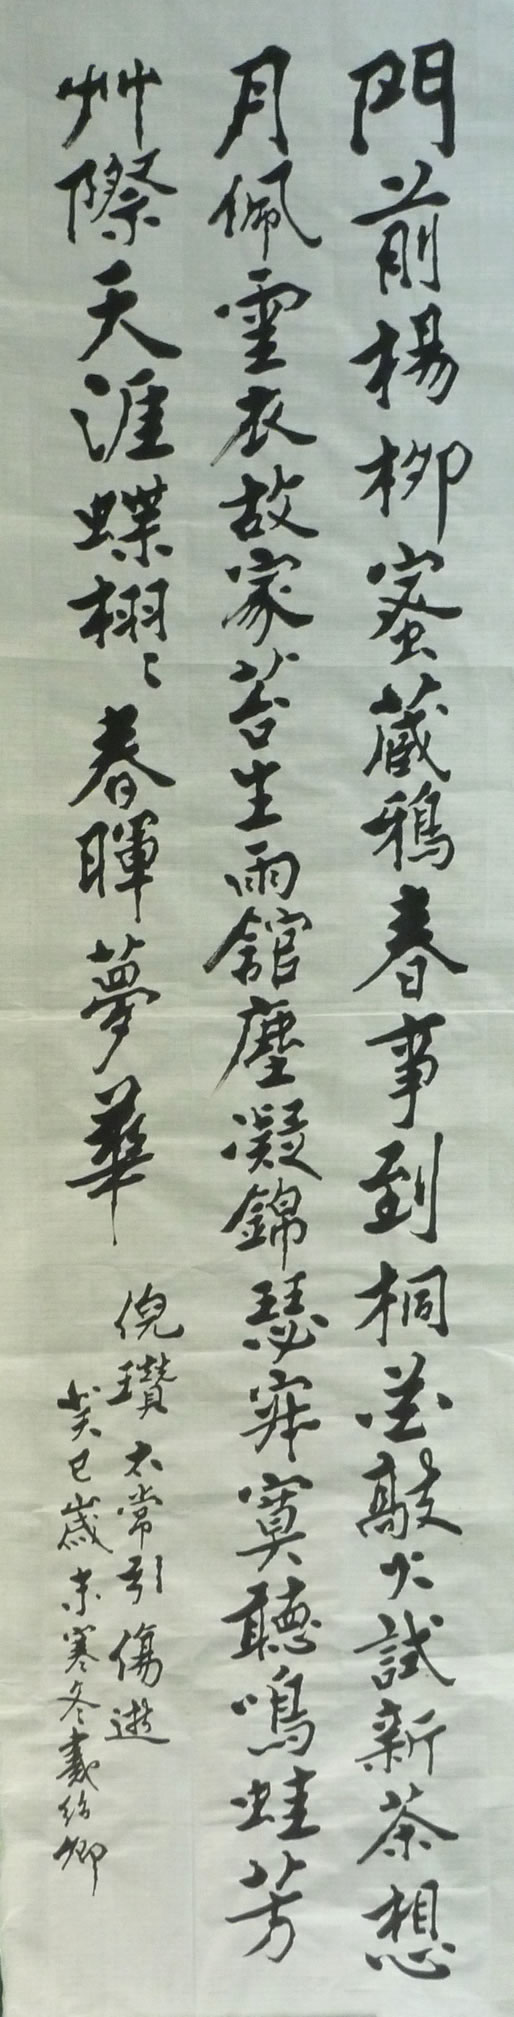 門前楊柳蜜藏鴉春事到桐花敲火試新茶想
月佩雲衣故家苔生雨舘塵凝錦瑟寂寞聽鳴蛙芳
艸際天涯蝶栩〻春暉夢華
倪瓚太常引傷逝
癸巳歲末寒冬紹卿